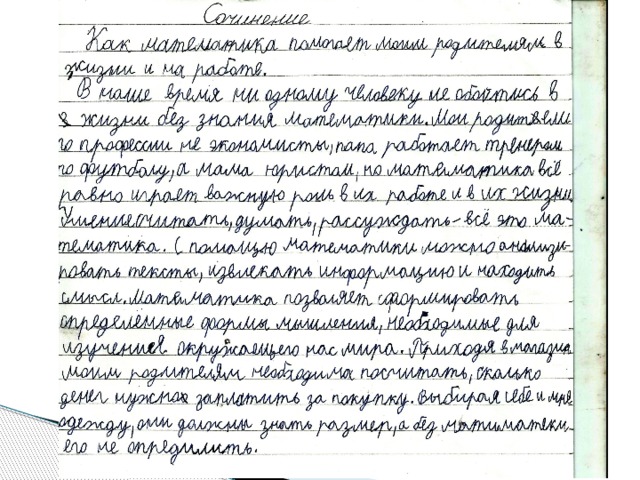 Сочинение
Как математика помогает моим родителям в
жизни и на работе.
В наше время ни одному человеку не обойтись в
в жизни без знания математики. Мои родители
по профессии не экономисты, папа работает тренером
по футболу, а мама юристом, но математика всё
равно играет важную роль в их работе и в их жизни
Умение считать, думать, рассуждать - всё это ма-
тематика. С помощью математики можно анализи-
ровать тексты, извлекать информацию и находить
смысл. Математика позволяет сформировать
определенные формы мышления, необходимые для
изучения окружаещего нас мира. Приходя в магазин
моим родителям необходима посчитать, сколько
денег нужно заплатить за покупку. Выбирая себе и мне
одежду, они должны знать размер, а без матиматеки
его не опредилить.